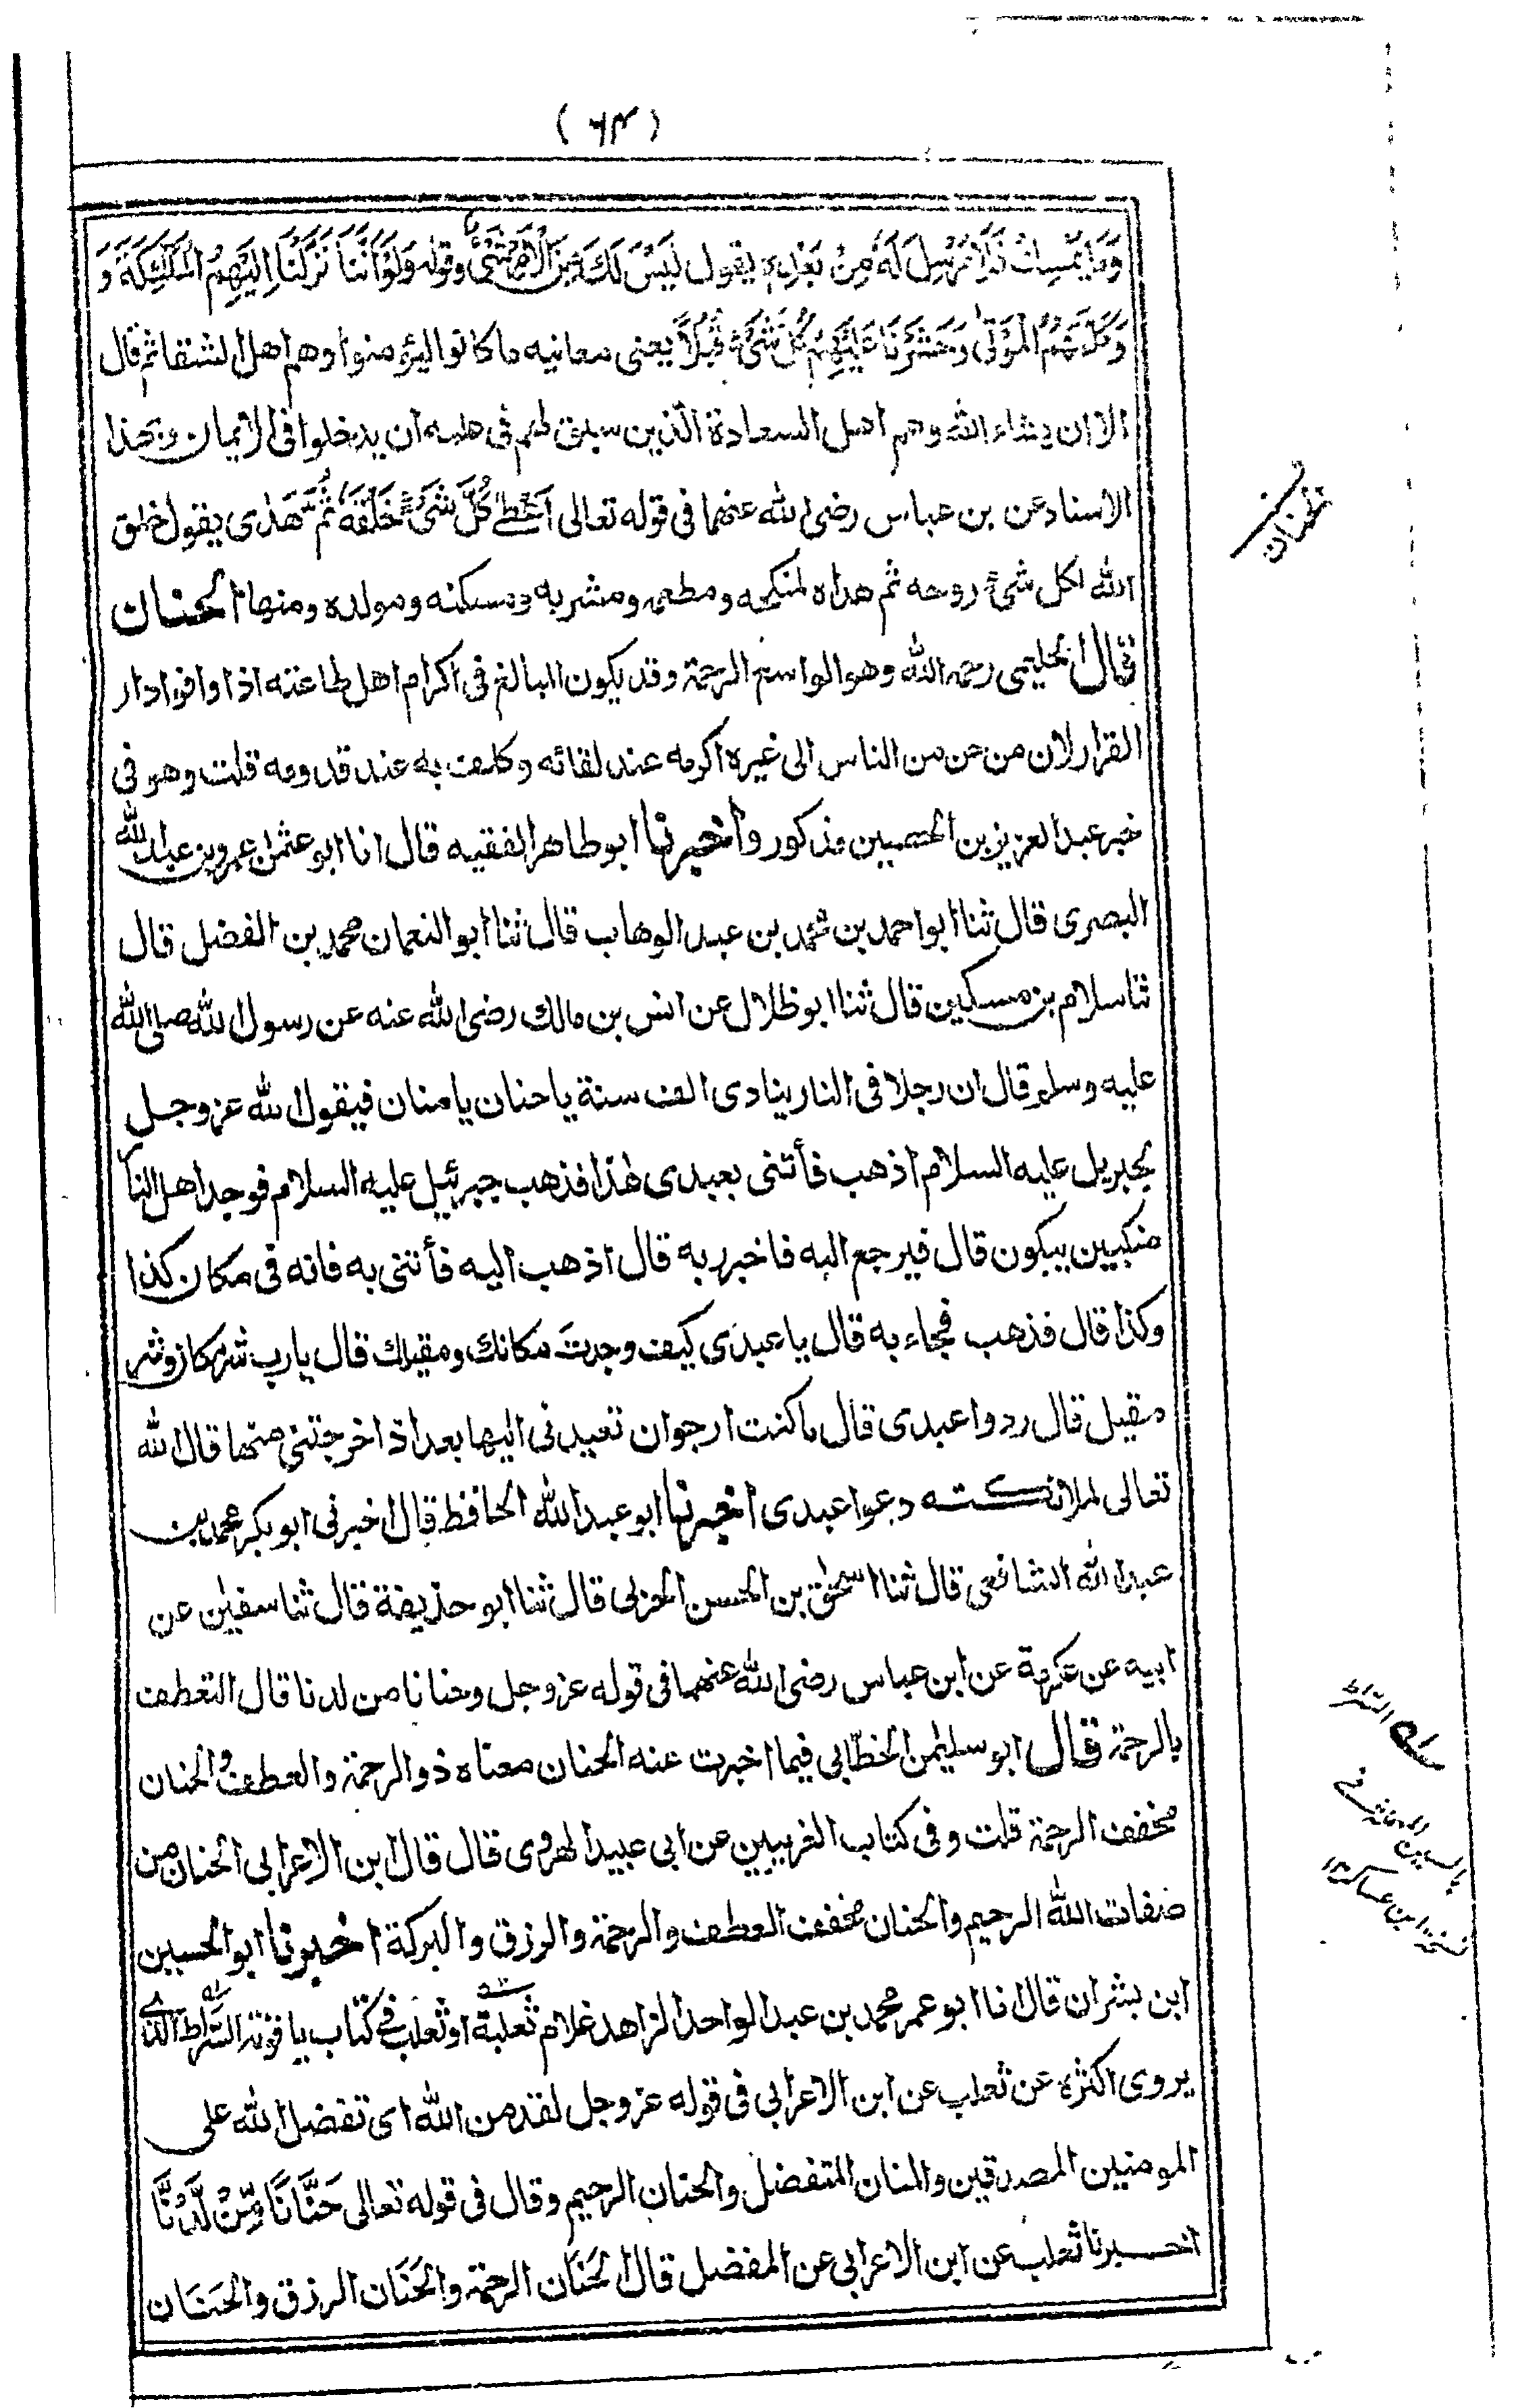 (٦٤)
وَمَا يُمْسِكْ فَلَا مُرْسِلَ لَهُ مِنْ بَعْدِهٖ يقول لَيْسَ لَكَ مِنَ الْاَمْرِ شَىْءٌ وقوله وَلَوْ اَنَّنَا نَزَّلْنَا اِلَيْهِمُ الْمَلٰٓئِكَةَ وَ
وَكَلَّمَهُمُ الْمَوْتٰى وَحَشَرْنَا عَلَيْهِمْ كُلَّ شَىْءٍ قُبُلًا يعنى معانيه ما كانوا ليؤمنوا وهم اهل الشقا ثم قال
الا ان يشاء الله وهم اهل السعادة الذين سبق لهم فى علمه ان يدخلوا فى الايمان وبهذا
الاسناد عن بن عباس رضى الله عنهما فى قوله تعالى اَعْطٰى كُلَّ شَىْءٍ خَلْقَهٗ ثُمَّ هَدٰى يقول خلق
الله لكل شىء روحه ثم هداه لمنكحه ومطعمه ومشربه ومسكنه ومولده ومنها الحنان
قال الحليمى رحمه الله وهو الواسع الرحمة وقد يكون المبالغ فى اكرام اهل طاعته اذا وافوا دار
القرار لان من حن من الناس الى غيره اكرمه عند لقائه وكلف به عند قدومه قلت وهو فى
خبر عبد العزيز بن الحصين مذكور واخبرنا ابو طاهر الفقيه قال انا ابو عثمن عمرو بن عبد الله
البصرى قال ثنا ابو احمد بن محمد بن عبد الوهاب قال ثنا ابو النعمان محمد بن الفضل قال
ثنا سلام بن مسكين قال ثنا ابو ظلال عن انس بن مالك رضى الله عنه عن رسول الله صلى الله
عليه وسلم قال ان رجلا فى النار ينادى الف سنة يا حنان يا منان فيقول الله عز وجل
لجبريل عليه السلام اذهب فأتنى بعبدى هٰذا فذهب جبرئيل عليه السلام فوجد اهل النا
منكبين يبكون قال فيرجع اليه فاخبر ربه قال اذهب اليه فأتنى به فانه فى مكان كذا
وكذا قال فذهب فجاء به قال يا عبدى كيف وجدت مكانك ومقيلك قال يا رب شر مكان وشر
مقيل قال ردوا عبدى قال ما كنت ارجو ان تعيدنى اليها بعد اذ اخرجتنى منها قال الله
تعالى لملائكته دعوا عبدى اخبرنا ابو عبد الله الحافظ قال اخبرنى ابو بكر محمد بن
عبد الله الشافعى قال ثنا اسحٰق بن الحسن الحربى قال ثنا ابو حذيفة قال ثنا سفين عن
ابيه عن عكرمة عن ابن عباس رضى الله عنهما فى قوله عز وجل وحنانا من لدنا قال التعطف
بالرحمة قال ابو سليمٰن الخطّابى فيما اخبرت عنه الحنان معناه ذو الرحمة والعطف والحنان
مخفف الرحمة قلت وفى كتاب الغريبين عن ابى عبيد الهروى قال قال ابن الاعرابى الحنان من
صفات الله الرحيم والحنان مخفف العطف والرحمة والرزق والبركة اخبرنا ابو الحسين
ابن بشران قال انا ابو عمر محمد بن عبد الواحد الزاهد غلام ثعلبة او ثعلب فى كتاب ياقوتة السّراط الذى
يروى اكثره عن ثعلب عن ابن الاعرابى فى قوله عز وجل لقد من الله اى تفضل الله على
المومنين المصدقين والمنان المتفضل والحنان الرحيم وقال فى قوله تعالى حَنَّانًا مِّنْ لَّدُنَّا
اخبرنا ثعلب عن ابن الاعرابى عن المفضل قال الحَنَان الرحمة والحَنَان الرزق والحَنَان
الحنان
له السّراط
بالسين المهملة فى
نسخة ابن عساكر ١٢